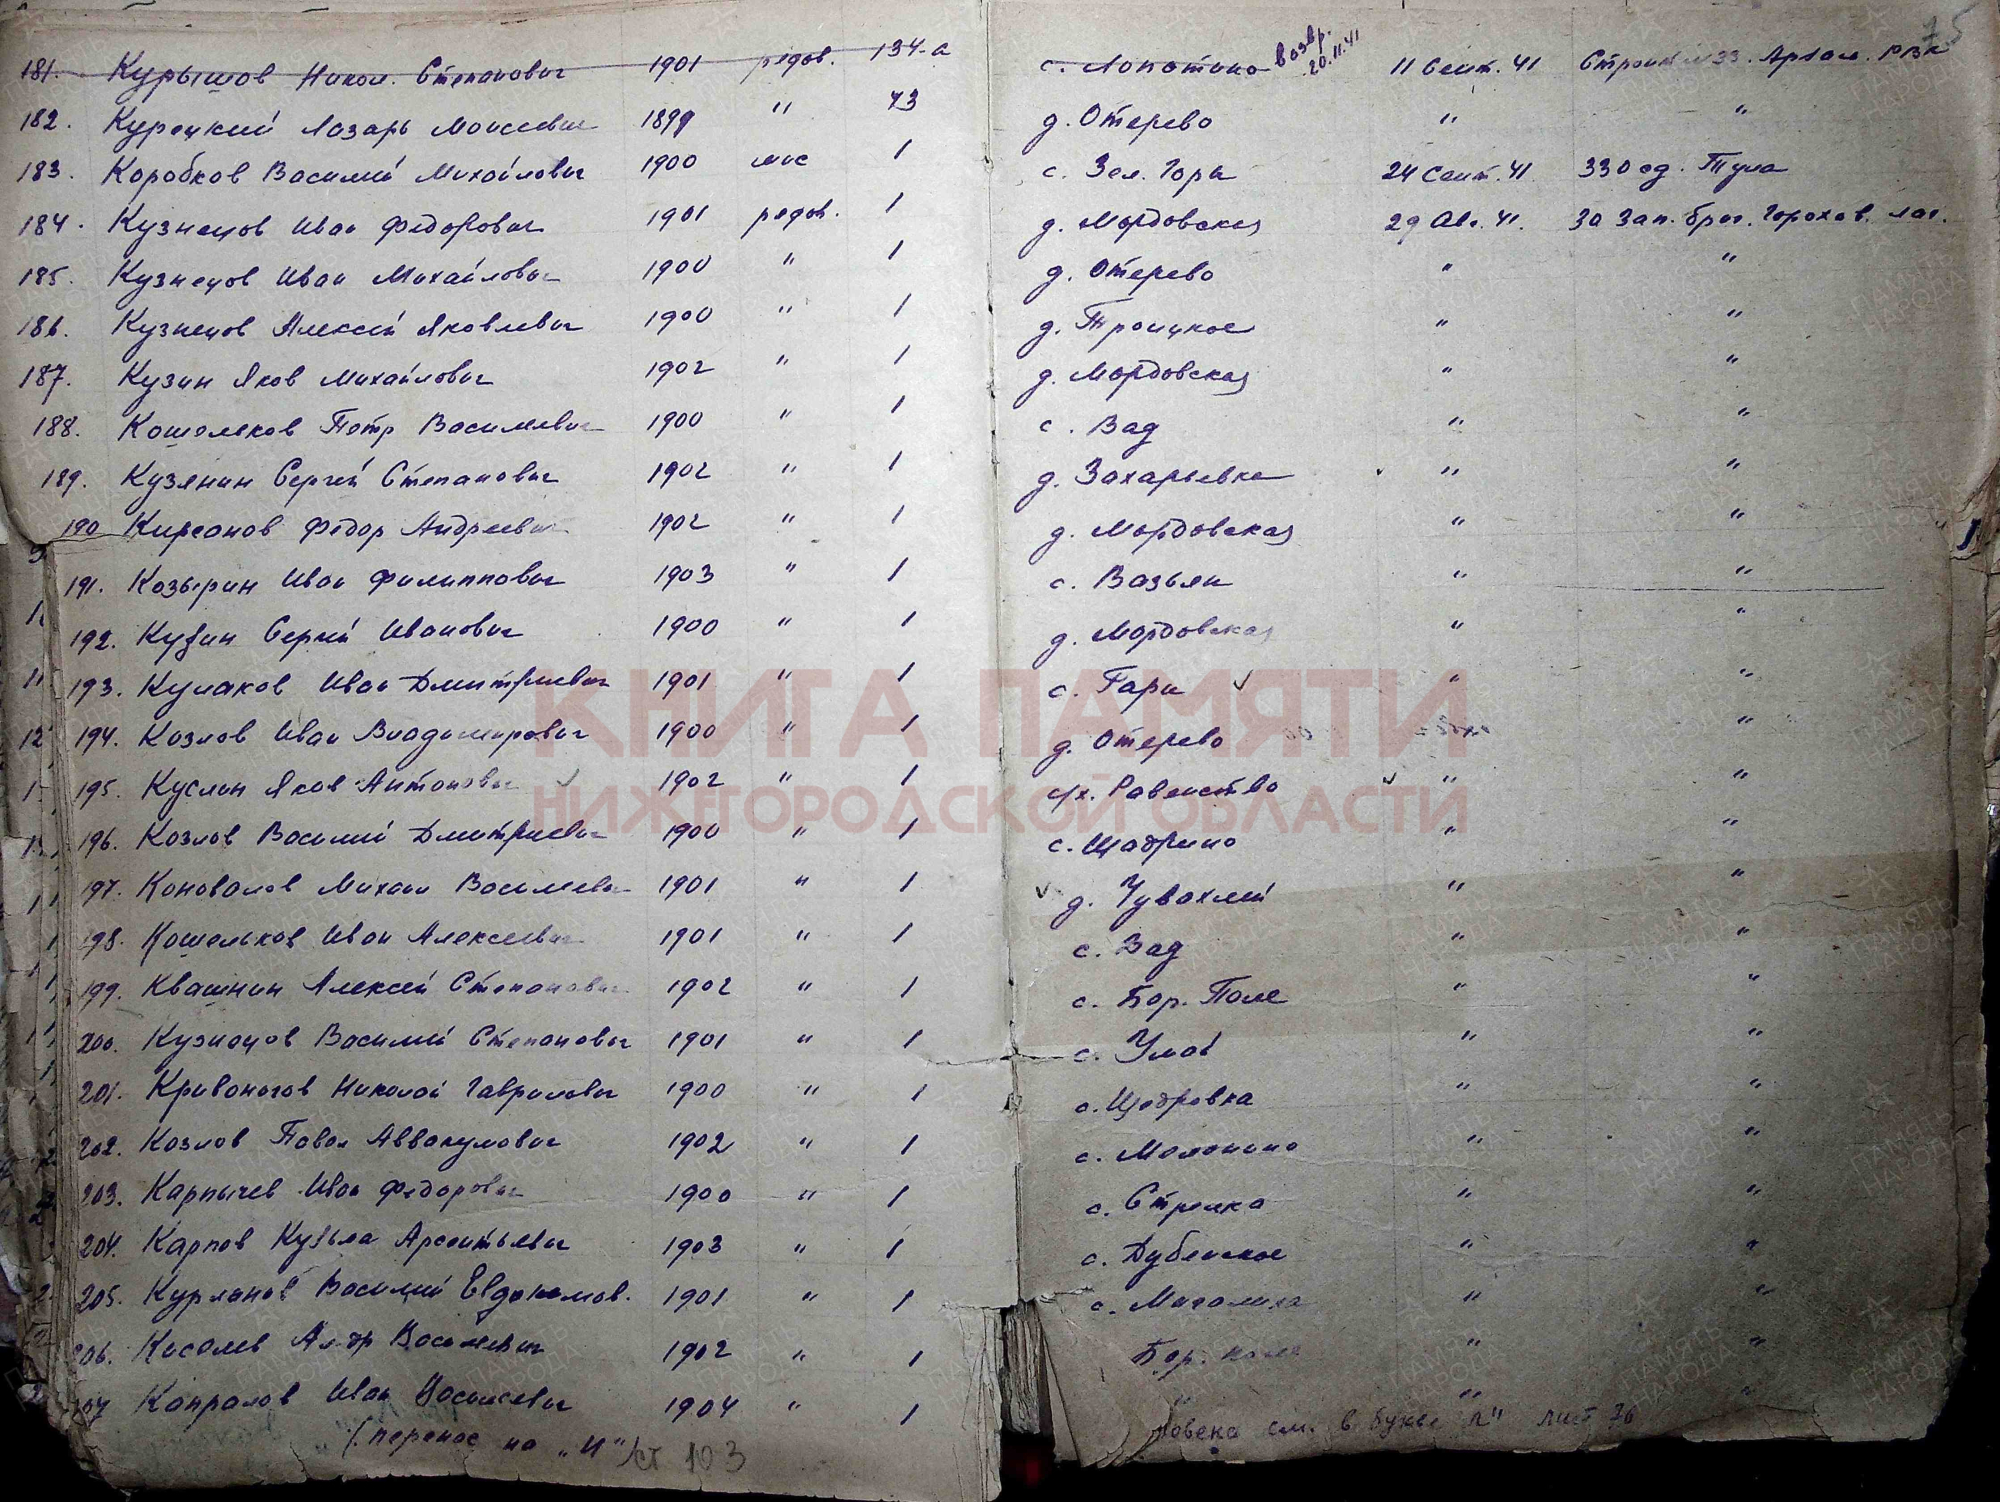 75
181. Курышов Никол. Степанович 1901 рядов. 134-а с. Лопатино возвр. 20.11.41 11 Сент. 41
182. Курецкий Лазарь Моисеевич 1899 " 43 д. Отерево " "
183. Коробков Василий Михайлович 1900 мнс 1 с. Зел. Горы 24 Сент. 41 330 сд. Тула
184. Кузнецов Иван Федорович 1901 рядов. 1 д. Мордовская 29 Авг. 41. 30 Зап. бриг. Горохов. лаг.
185. Кузнецов Иван Михайлович 1900 " 1 д. Отерево " "
186. Кузнецов Алексей Яковлевич 1900 " 1 д. Троицкое " "
187. Кузин Яков Михайлович 1902 " 1 д. Мордовская " "
188. Кошелеков Петр Васильевич 1900 " 1 с. Вад " "
189. Кузянин Сергей Степанович 1902 " 1 д. Захарьевка " "
190 Кирсанов Федор Андреевич 1902 " 1 д. Мордовская " "
191. Козырин Иван Филиппович 1903 " 1 с. Вазьян " "
192. Кузин Сергей Иванович 1900 " 1 д. Мордовская " "
193. Кулаков Иван Дмитриевич 1901 " 1 с. Гари " "
194. Козлов Иван Владимирович 1900 " 1 д. Отерево "
195. Куслин Яков Антонович 1902 " 1 с/х. Равенство " "
196. Козлов Василий Дмитриевич 1900 " 1 с. Щадрино " "
197. Коновалов Михаил Васильевич 1901 " 1 д. Чувахлей " "
198. Кошельков Иван Алексеевич 1901 " 1 с. Вад " "
199. Квашнин Алексей Степанович 1902 " 1 с. Бор. Поле " "
200. Кузнецов Василий Степанович 1901 " 1 с. Умай " "
201. Кривоногов Николай Гаврилович 1900 " 1 с. Щедровка " "
202. Козлов Павел Аввакумович 1902 " 1 с. Мамонино " "
203. Карпычев Иван Федорович 1900 " 1 с. Стрелка " "
204. Карпов Кузьма Арсентьевич 1903 " 1 с. Дубенское " "
205. Курланов Василий Евдокимов. 1901 " 1 с. Магалиха " "
206. Киселев Ал-др Васильевич 1902 " 1 Бор. поле " "
207 Капралов Иван Васильевич 1904 " 1 " " "
(перенос на „И") ст 103
ловека см. в букве „Л" лист 76
КНИГА ПАМЯТИ
НИЖЕГОРОДСКОЙ ОБЛАСТИ
ПАМЯТЬ НАРОДА